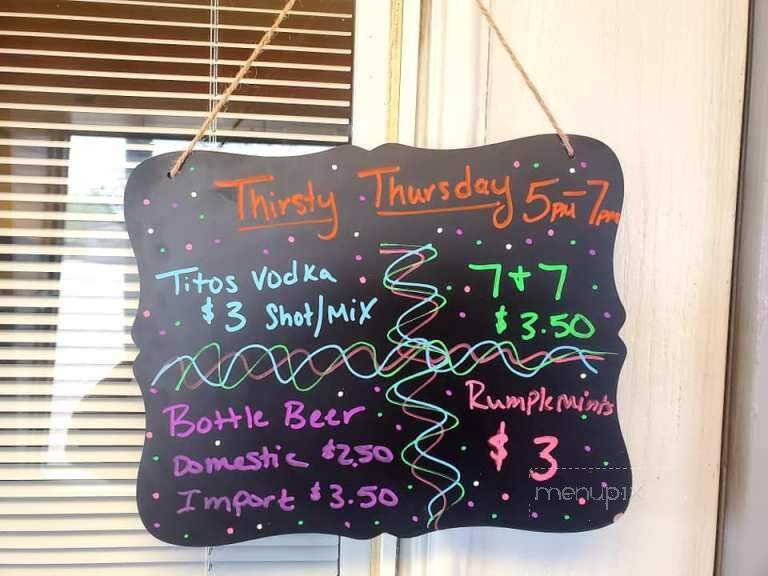 Thirsty Thursday 5pm-7pm
Titos Vodka
$3 Shot/Mix
7+7
$3.50
Bottle Beer
Domestic $2.50
Import $3.50
Rumplemints
$3
menupix